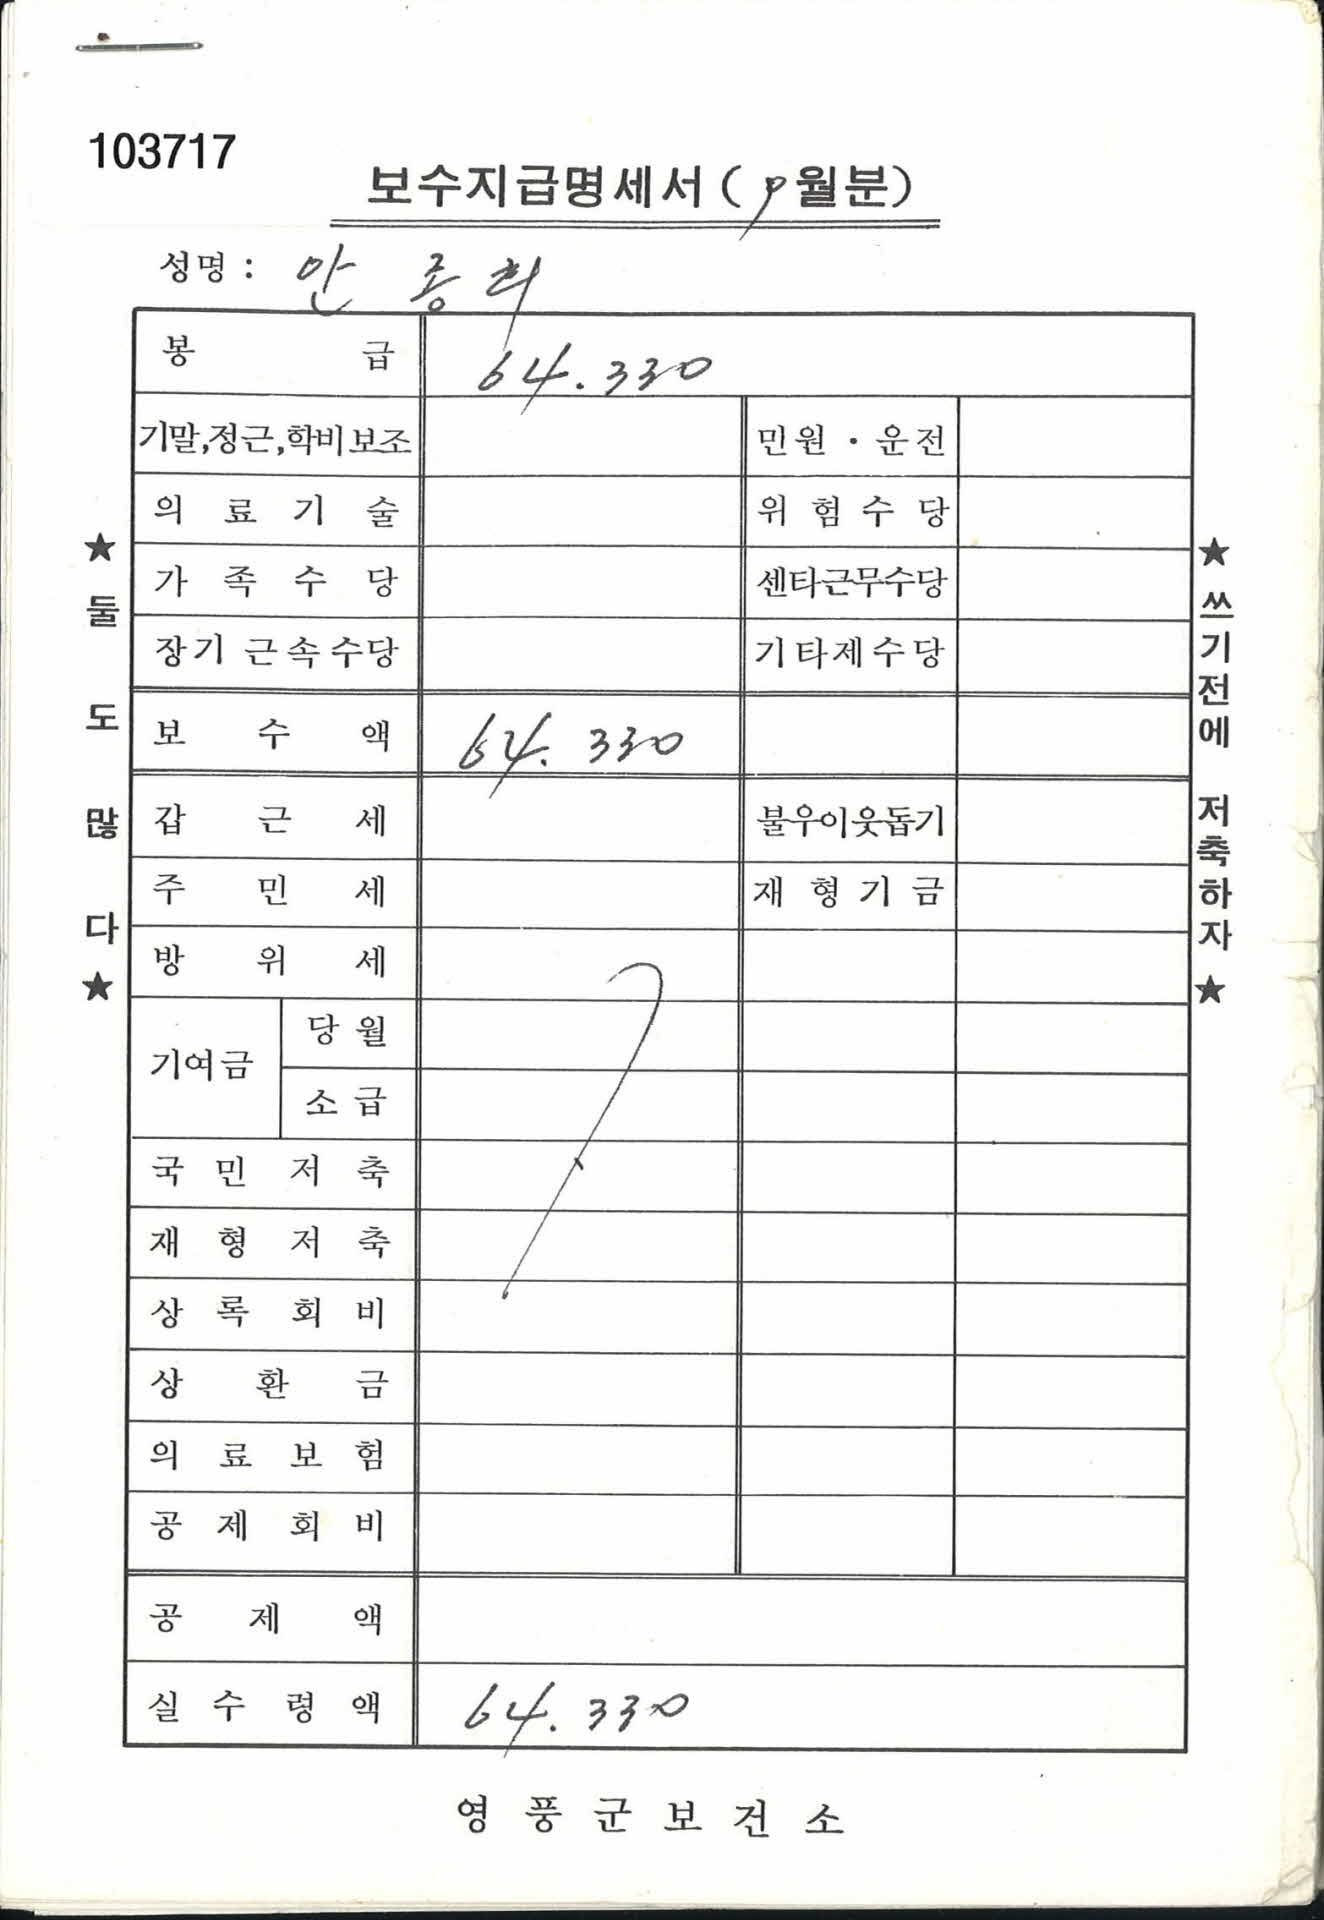 103717
보수지급명세서 (9월분)
성명 : 안종희
봉급 64.330
기말,정근,학비보조 민원 · 운전
의료기술 위험수당
가족수당 센타근무수당
장기근속수당 기타제수당
보수액 64.330
갑근세 불우이웃돕기
주민세 재형기금
방위세
기여금 당월
소급
국민저축
재형저축
상록회비
상환금
의료보험
공제회비
공제액
실수령액 64.330
★ 둘도 많다 ★
★ 쓰기전에 저축하자 ★
영풍군보건소